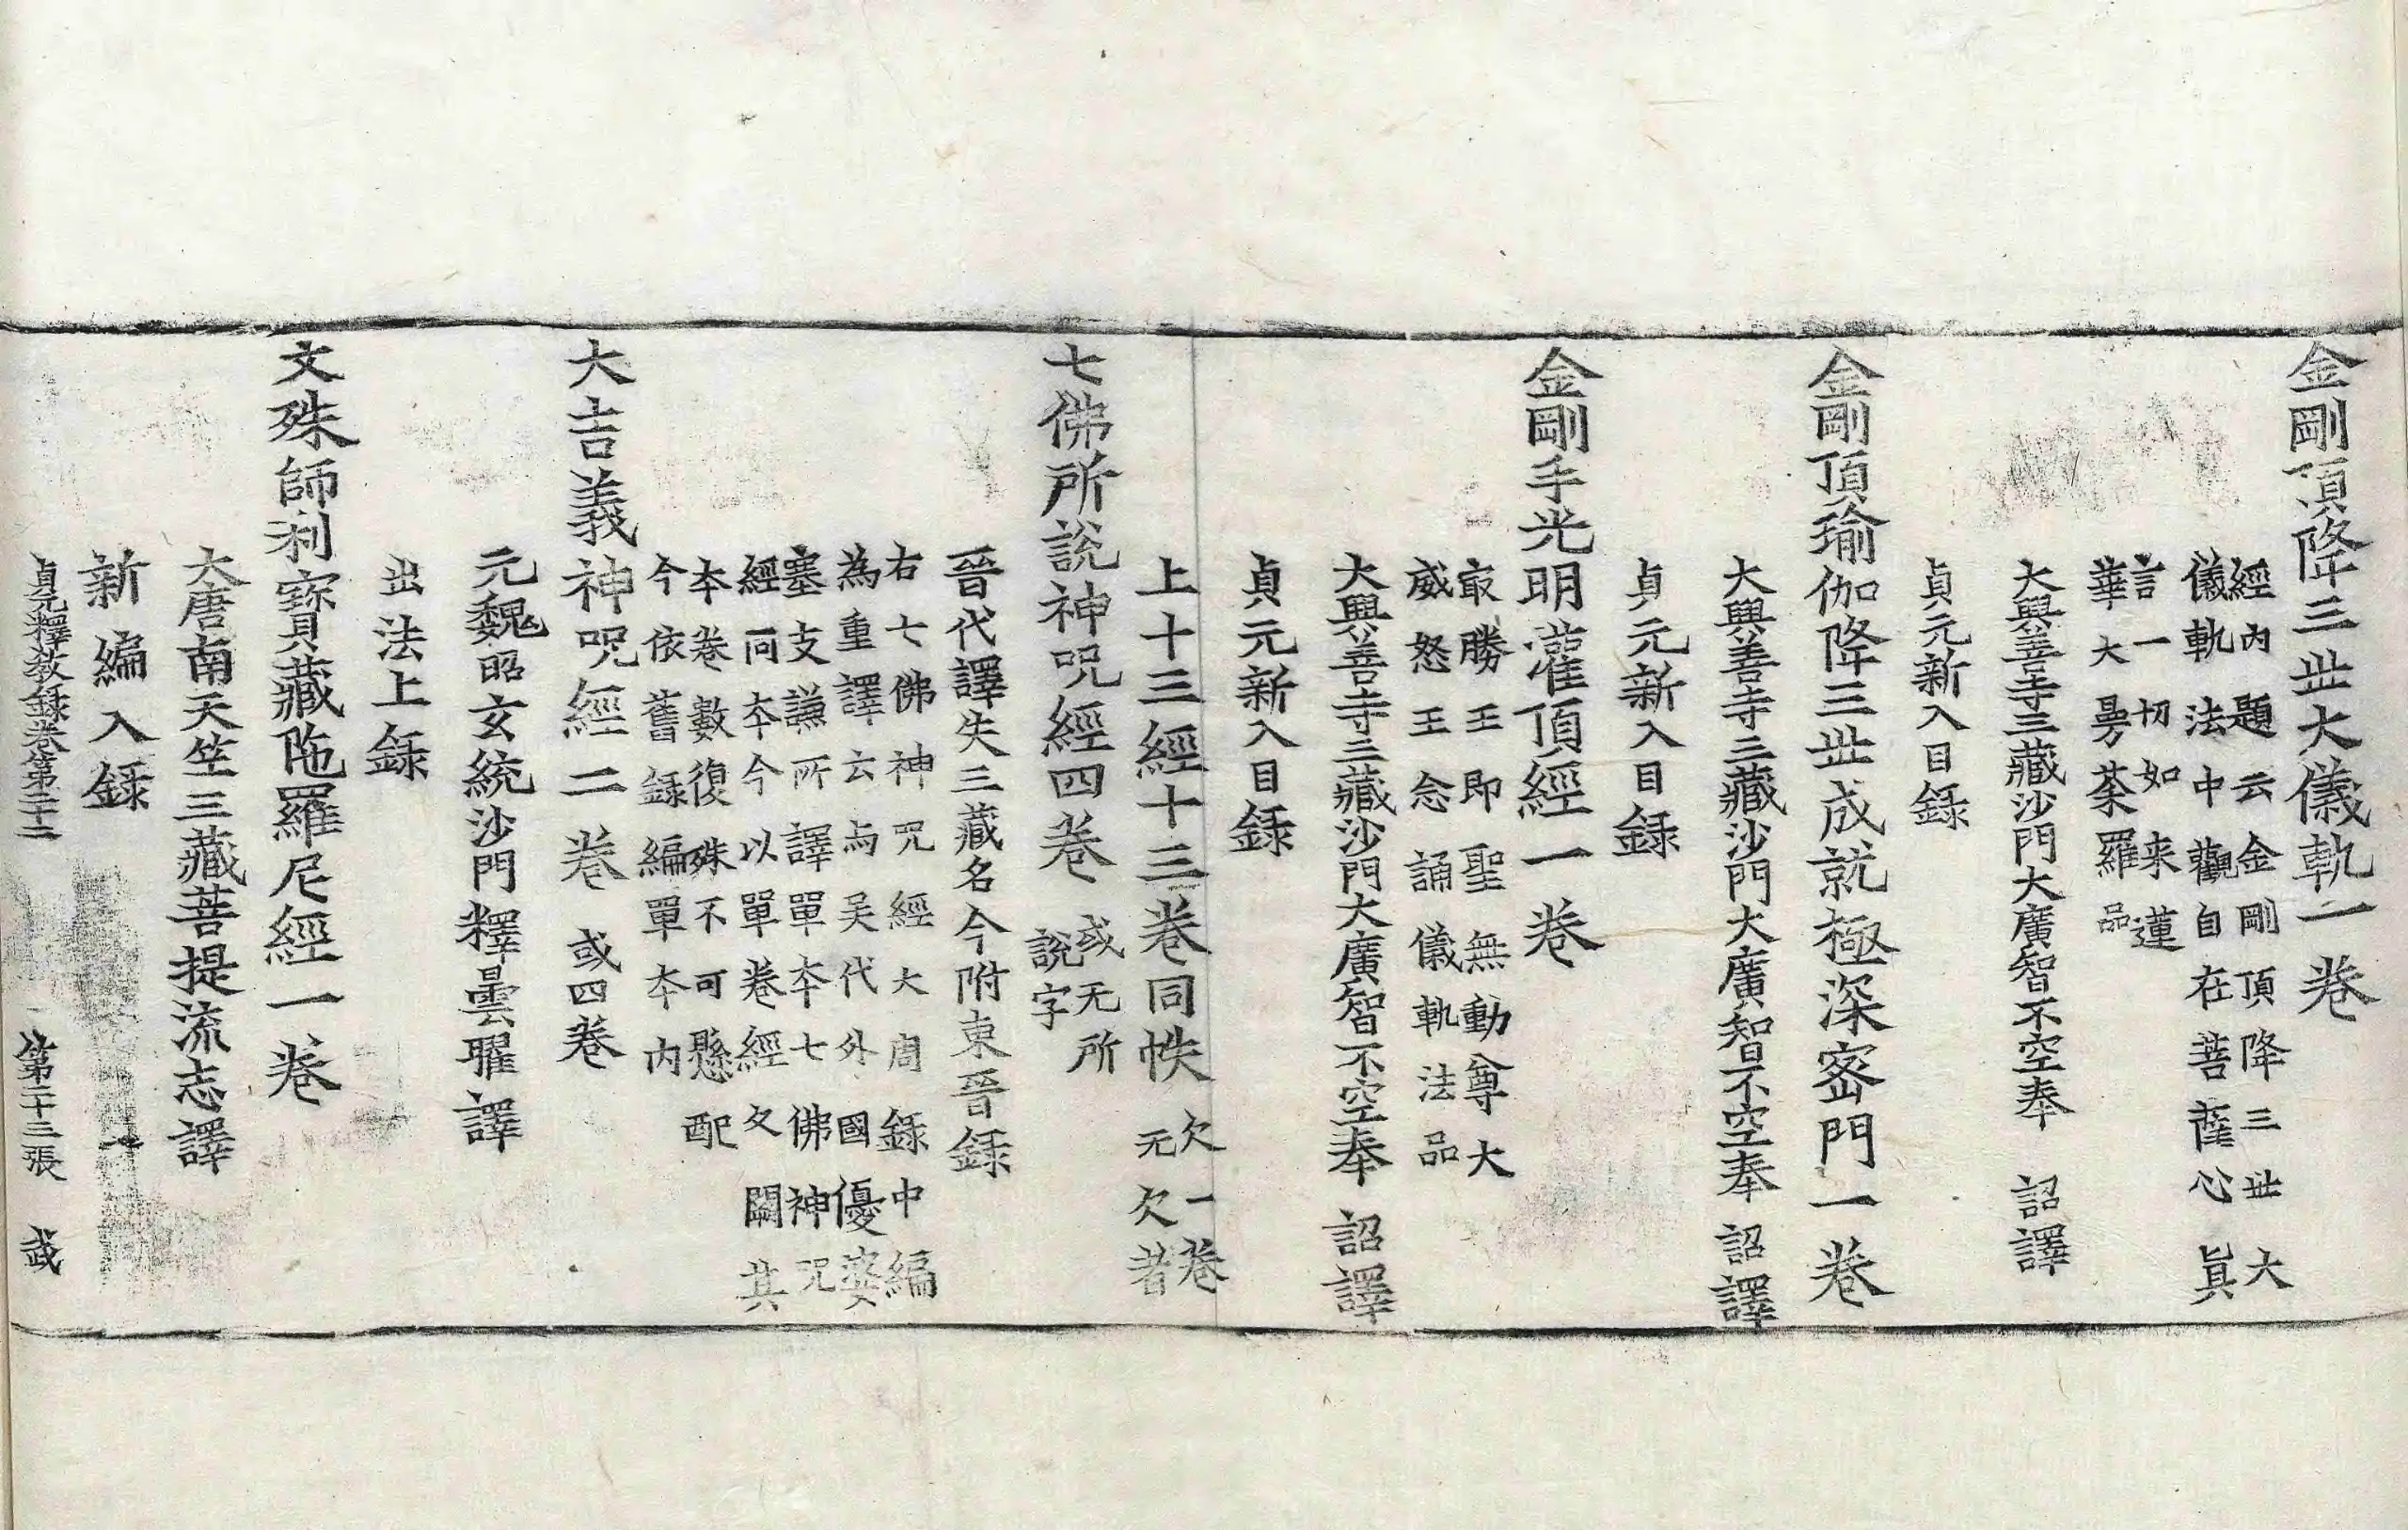 金剛頂降三丗大儀軌一卷
經内題云金剛頂降三丗大
儀軌法中觀自在菩薩心真
言一切如来蓮
華大曼荼羅品
大興善寺三藏沙門大廣智不空奉　詔譯
貞元新入目録
金剛頂瑜伽降三丗成就極深密門一卷
大興善寺三藏沙門大廣智不空奉　詔譯
貞元新入目録
金剛手光明灌頂經一卷
㝡勝王即聖無動尊大
威怒王念誦儀軌法品
大興善寺三藏沙門大廣智不空奉　詔譯
貞元新入目録
上十三經十三卷同帙
欠一卷
无欠者
七佛所說神呪經四卷
或无所
說字
晉代譯失三藏名今附東晉録
右七佛神呪經大周録中編
為重譯云与吴代外國優婆
塞支謙所譯單本七佛神呪
經同本今以單卷經久闕其
本卷數復殊不可懸配
今依舊録編單本内
大吉義神呪經二卷　或四卷
元魏昭玄統沙門釋曇曜譯
出法上録
文殊師利寶藏陁羅尼經一卷
大唐南天笁三藏菩提流志譯
新編入録
貞元釋教録卷第二十二　第二十三張　武